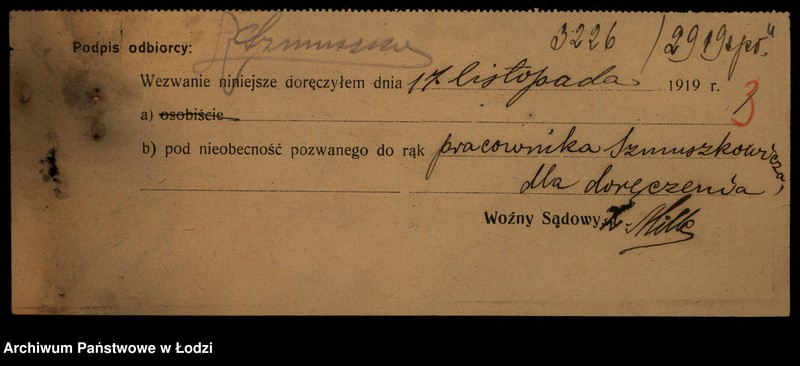 Podpis odbiorcy: Szmuszko
3226 / 2919
Wezwanie niniejsze doręczyłem dnia 17 listopada 1919 r.
3
a) osobiście
b) pod nieobecność pozwanego do rąk pracownika Szmuszkowicza,
dla doręczenia
Woźny Sądowy
Archiwum Państwowe w Łodzi